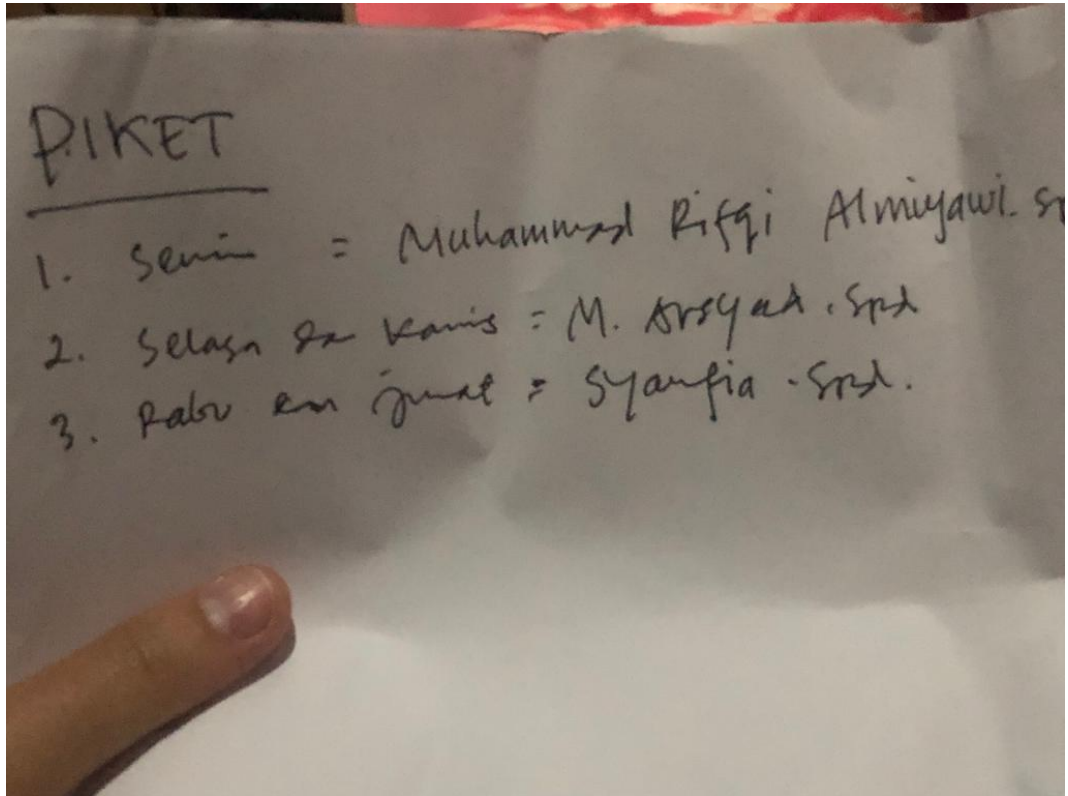 PIKET
1. Senin = Muhammad Rifqi Almiyawi. Sp
2. Selasa dan Kamis = M. Arsyad. Spd
3. Rabu dan jumat = Syaufia. Spd.